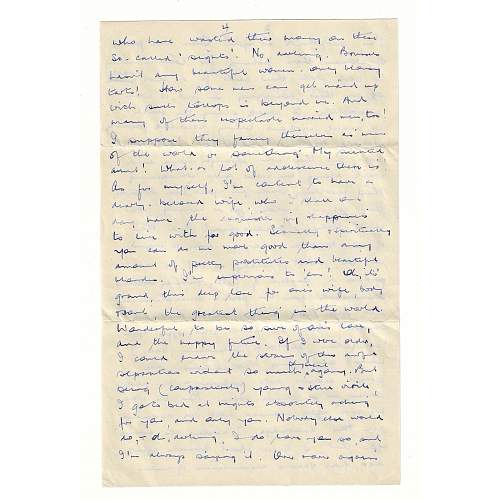 4
who have wasted their money on these
so-called 'sights'. No, darling. Borneo
hasn't any beautiful women. Only blowsy
tarts! How some men can get mixed up
with such trollops is beyond me. And
many of them respectable married men, too!
I suppose they fancy themselves as men
of the world or something! My
aunt! What a lot of adolescence there is
As for myself, I'm content to have a
dearly beloved wife, who I shall one
day have the happiness
to live with for good. Sexually
you can do me more good than any
amount of pretty prostitutes and beautiful
blondes. I'm impervious to 'em! Oh, it's
grand, this deep love for one's wife, body
the greatest thing in the world.
Wonderful, to be so sure of one's love,
and the happy future. If I were older,
I could bear the strain of this awful
separation without so much physical agony. But
being (comparatively) young & still virile
I go to bed at nights absolutely aching
for you, and only you. Nobody else would
do, & darling, I do love you so, and
I'm always saying it. Once more again